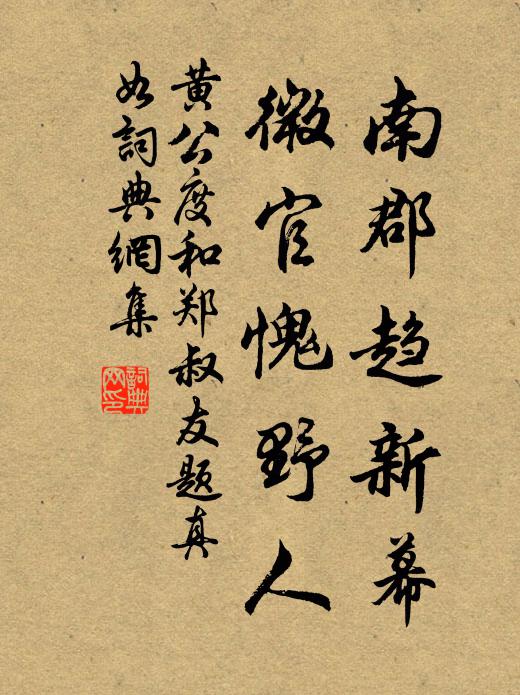 南郡趋新幕
微官愧野人
黄公度和郑叔友题真
如詞典網集
詞典
网印